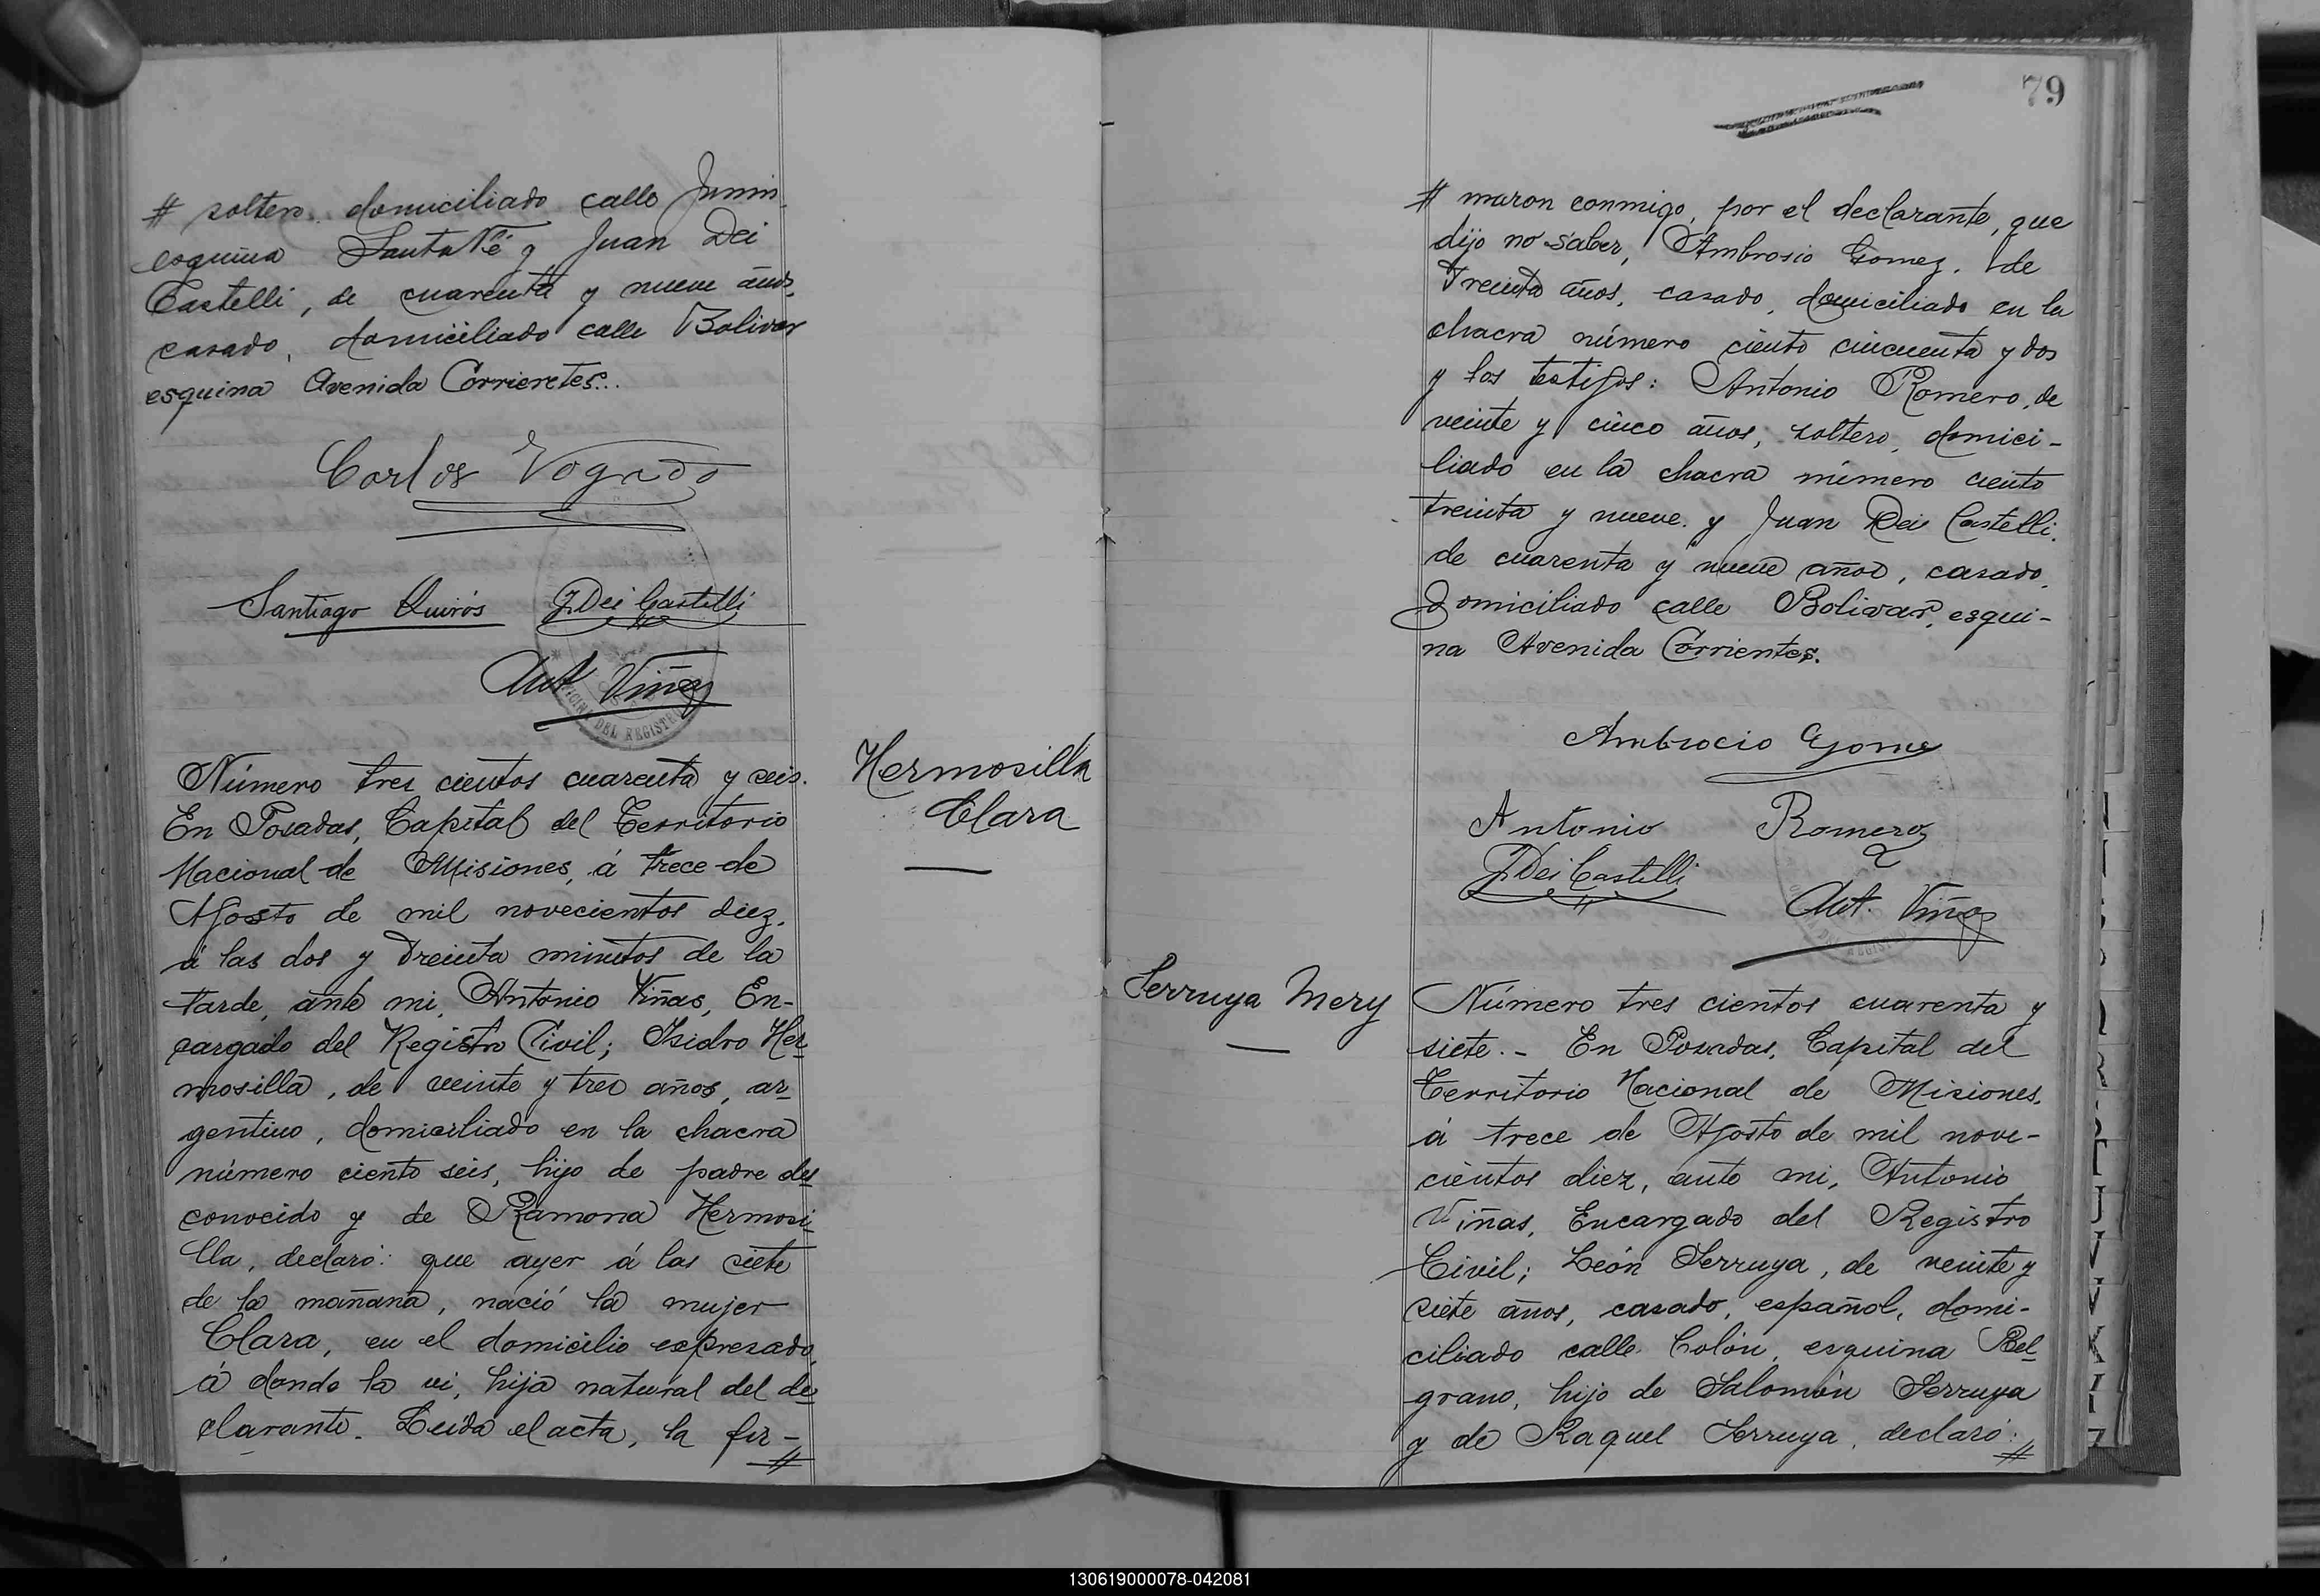 # soltero. domiciliado calle Junin
esquina Santa Fé y Juan Dei
Castelli, de cuarenta y nueve años,
casado, domiciliado calle Bolivar
esquina Avenida Corrientes...
Carlos Vogado
Santiago Quirós J. Dei Castelli
Ant Viñas
OFICINA DEL REGISTRO
Número tres cientos cuarenta y seis.
En Posadas, Capital del Territorio
Nacional de Misiones, á trece de
Agosto de mil novecientos diez,
á las dos y treinta minutos de la
tarde, ante mi, Antonio Viñas, En-
cargado del Registro Civil; Isidro Her-
mosilla, de veinte y tres años, ar-
gentino, domiciliado en la chacra
número ciento seis, hijo de padre des-
conocido y de Ramona Hermosi-
lla, declaró: que ayer á las siete
de la mañana, nació la mujer
Clara, en el domicilio expresado,
á donde la vi, hija natural del de-
clarante. Leida el acta, la fir-
#
Hermosilla
Clara
79
# maron conmigo, por el declarante, que
dijo no saber, Ambrosio Gomez, de
treinta años, casado, domiciliado en la
chacra número ciento cincuenta y dos
y los testigos: Antonio Romero, de
veinte y cinco años, soltero, domici-
liado en la chacra número ciento
treinta y nueve y Juan Dei Castelli,
de cuarenta y nueve años, casado,
domiciliado calle Bolivar, esqui-
na Avenida Corrientes.
Ambrocio Gome
Antonio Romero
J. Dei Castelli
Ant. Viñas
Serruya Mery
Número tres cientos cuarenta y
siete.- En Posadas, Capital del
Territorio Nacional de Misiones,
á trece de Agosto de mil nove-
cientos diez, ante mi, Antonio
Viñas, Encargado del Registro
Civil; León Serruya, de veinte y
siete años, casado, español, domi-
ciliado calle Colón, esquina Bel-
grano, hijo de Salomón Serruya
y de Raquel Serruya, declaró:
#
130619000078-042081